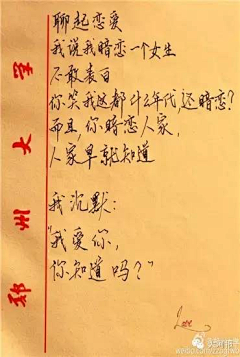 聊起恋爱
我说我暗恋一个女生
不敢表白
你笑我这都什么年代,还暗恋?
而且,你暗恋人家,
人家早就知道
我沉默:
"我爱你,
你知道吗?"
郑州大学
Love